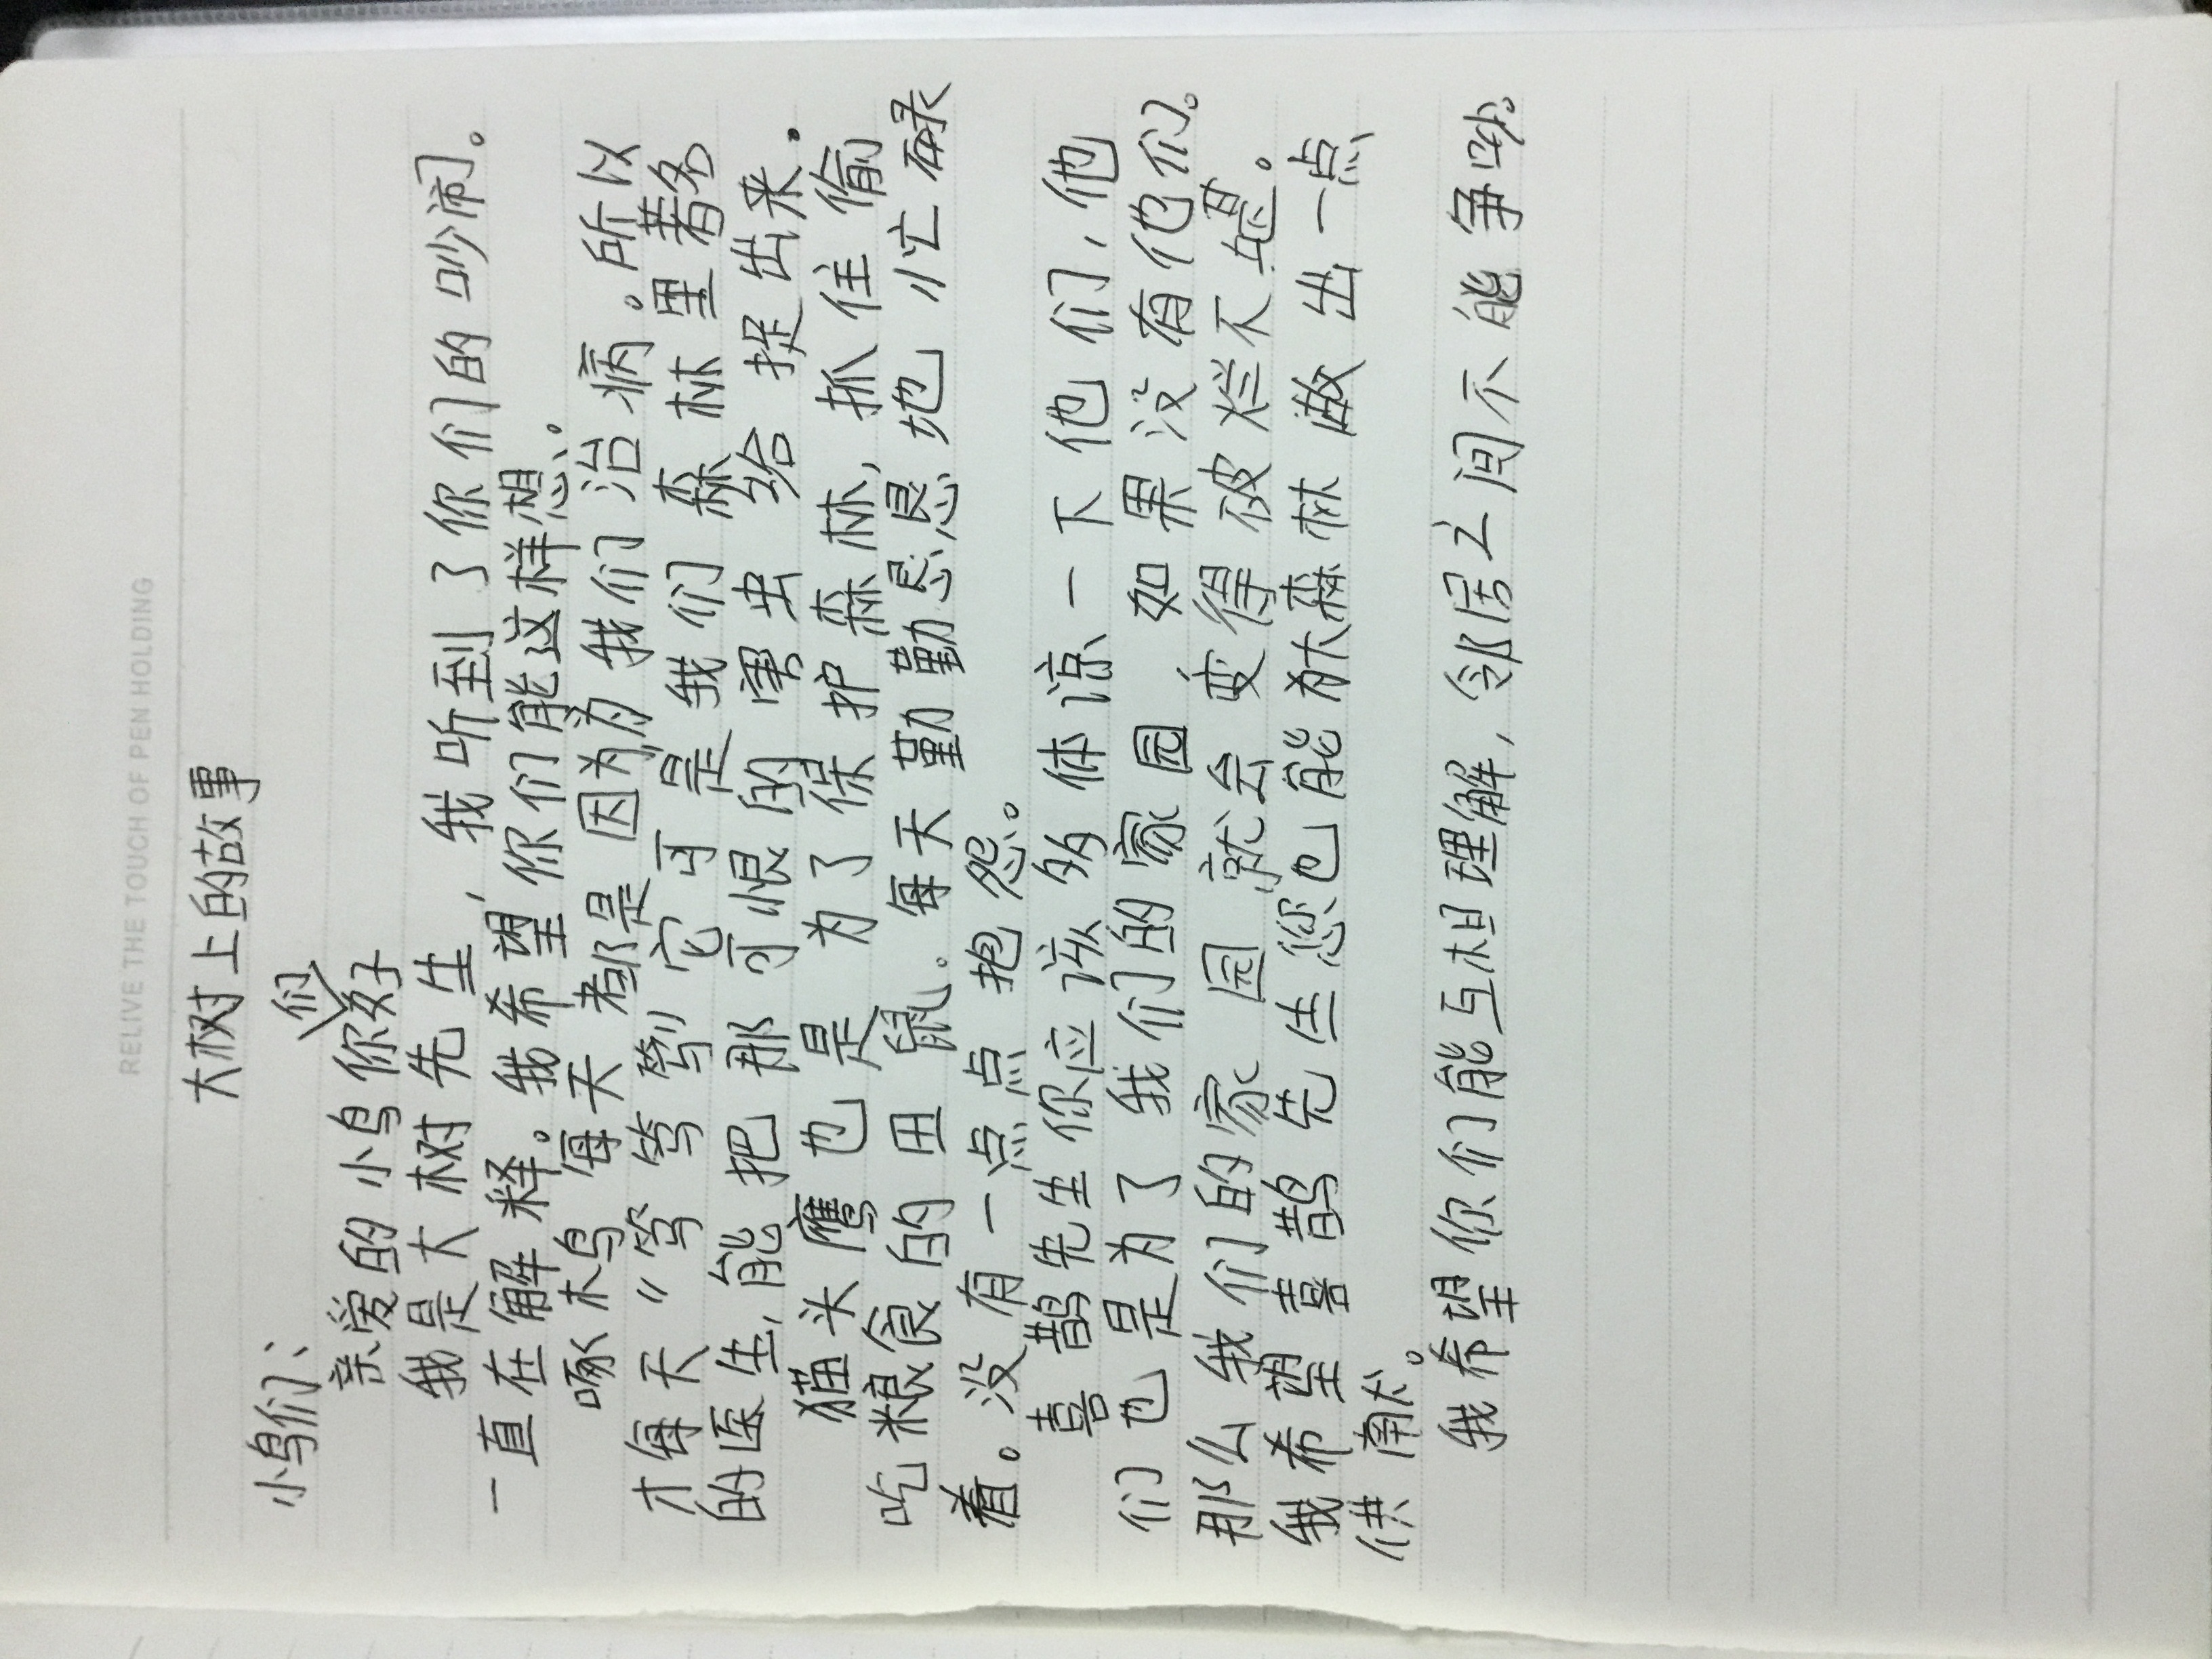 RELIVE THE TOUCH OF PEN HOLDING
大树上的故事
小鸟们:
亲爱的小鸟你们好
我是大树先生,我听到了你们的吵闹。
一直在解释。我希望你们能这样想:
啄木鸟每天都是因为为我们治病。所以
才每天“笃笃笃”它可是我们森林里著名
的医生,能把那可恨的害虫给捉出来.
猫头鹰也是为了保护森林,抓住偷
吃粮食的田鼠.每天勤勤恳恳地忙碌
着。没有一点点抱怨。
喜鹊先生你应该多体谅一下他们,他
们也是为了我们的家园如果没有他们。
那么我们的家园就会变得破烂不堪。
我希望喜鹊先生您也能为大森林做出一点
供献。
我希望你们能互相理解,邻居之间不能争吵。